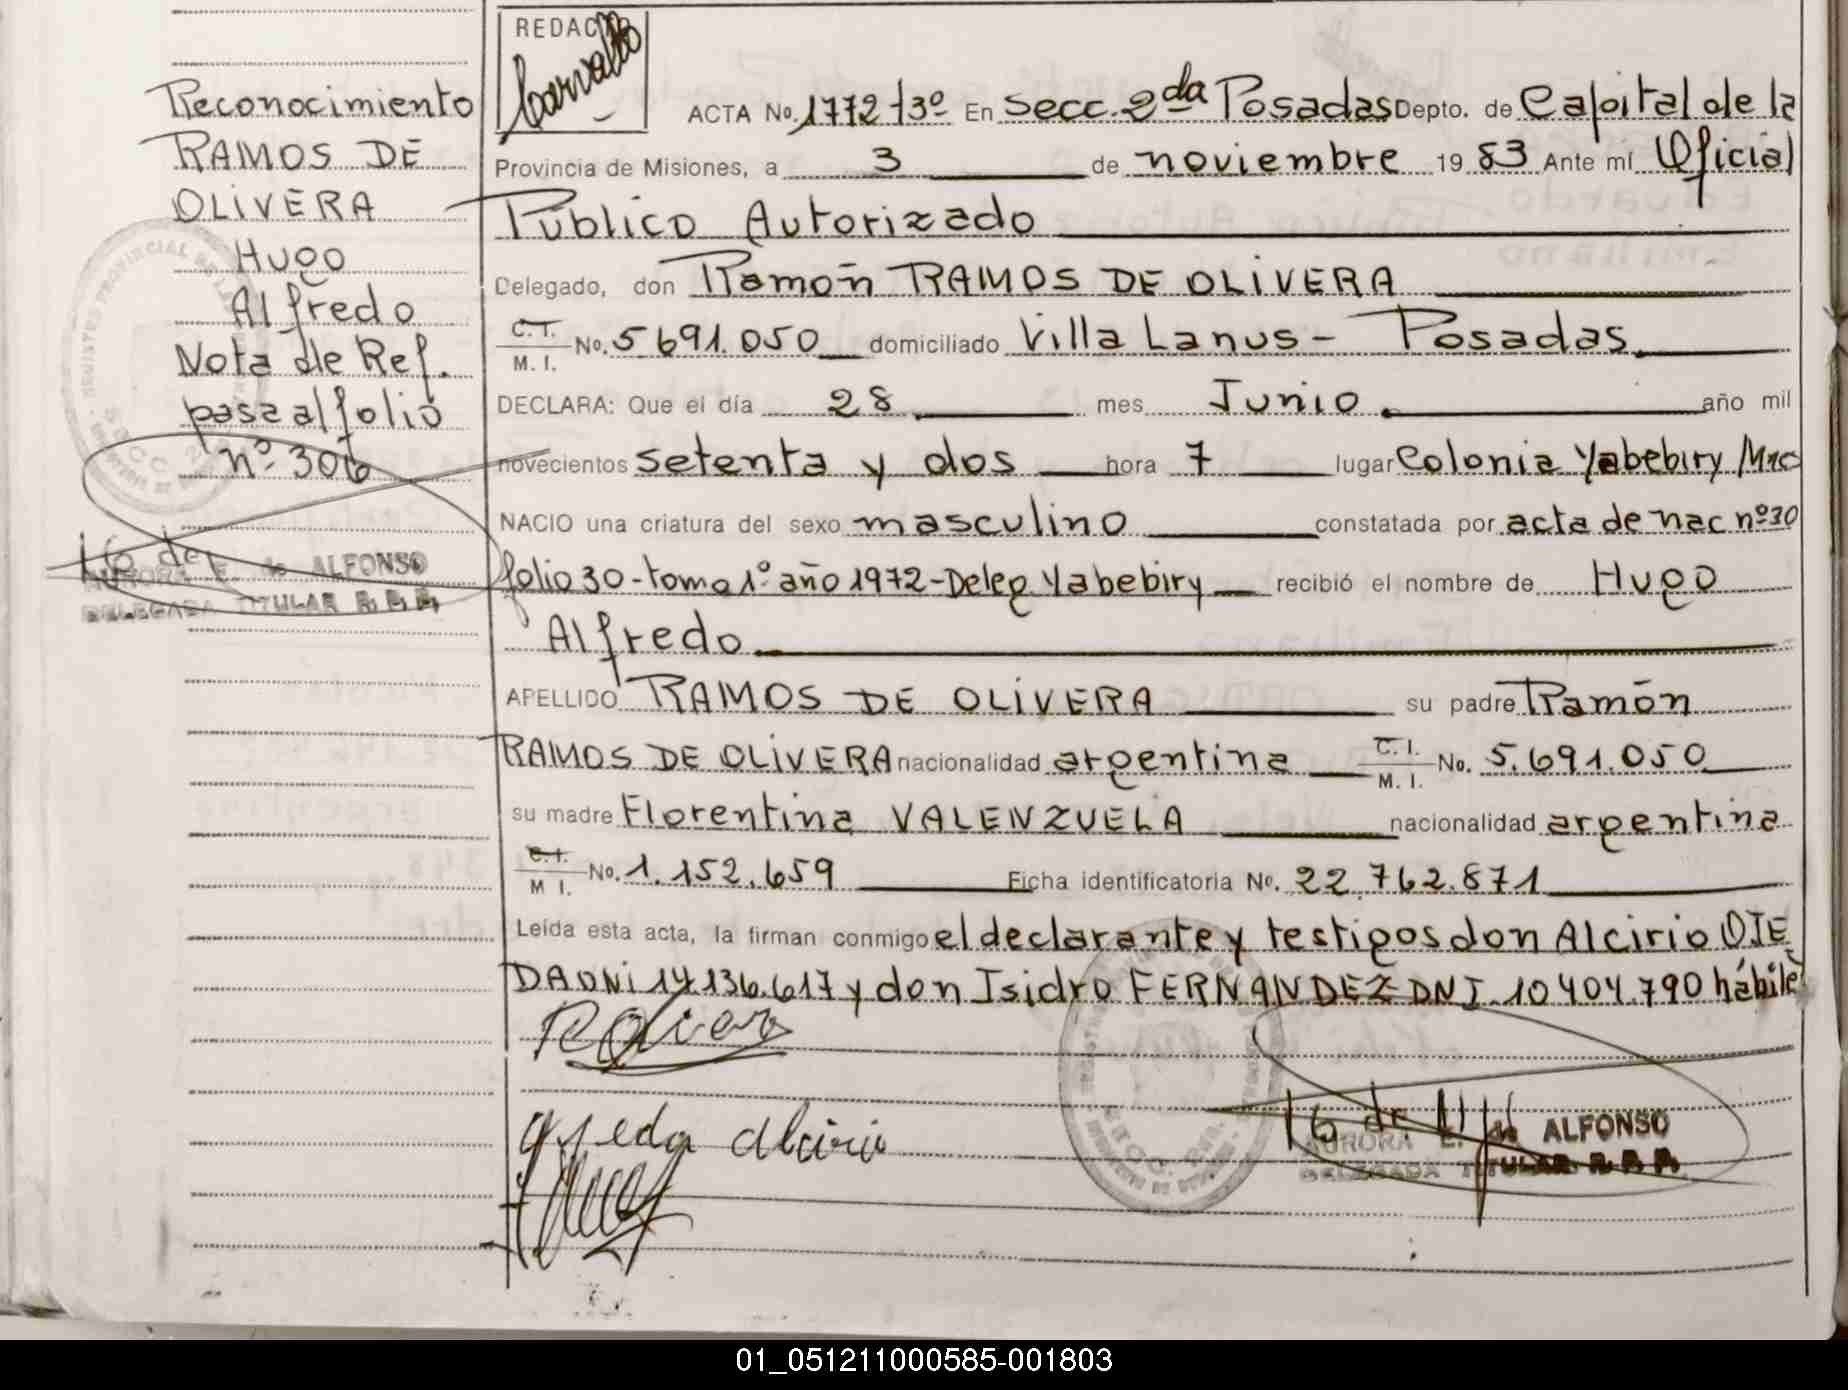 Reconocimiento
RAMOS DE
OLIVERA
Hugo
Alfredo
Nota de Ref.
pasa al folio
nº 306
AURORA E. de ALFONSO
DELEGADA TITULAR R. P. P.
REDAC
Carvallo
ACTA No. 1772 t3º En Secc. 2da Posadas Depto. de Capital de la
Provincia de Misiones, a 3 de noviembre 19 83 Ante mí Oficial
Público Autorizado
Delegado, don Ramón RAMOS DE OLIVERA
C.I. M. I. No. 5691.050 domiciliado Villa Lanus - Posadas.
DECLARA: Que el día 28 mes Junio año mil
novecientos setenta y dos hora 7 lugar Colonia Yabebiry Mnes
NACIO una criatura del sexo masculino constatada por acta de nac nº 30
folio 30 - tomo 1º año 1972 - Deleg Yabebiry recibió el nombre de Hugo
Alfredo
APELLIDO RAMOS DE OLIVERA su padre Ramón
RAMOS DE OLIVERA nacionalidad argentina C.I. M. I. No. 5.691.050
su madre Florentina VALENZUELA nacionalidad argentina
C.I. M I. No. 1.152.659 Ficha identificatoria No. 22.762.871
Leída esta acta, la firman conmigo el declarante y testigos don Alcirio OJE
DA DNI 14.136.617 y don Isidro FERNANDEZ DNI. 10404.790 hábile
ROliver
Ojeda Alcirio
AURORA E. de ALFONSO
DELEGADA TITULAR R. P. P.
01_051211000585-001803